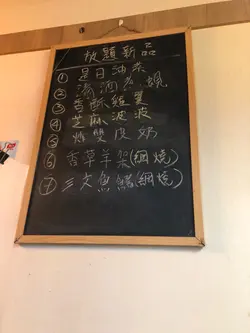 放題新品
① 是日油菜
② 湯酒煮蜆
③ 香酥雞翼
④ 芝麻波波
⑤ 炸雙皮奶
⑥ 香草羊架(網燒)
⑦ 三文魚鮫(網燒)